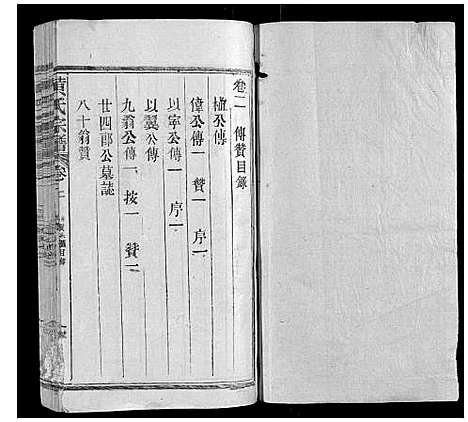 卷二　傳贊目錄
植公傳
偉公傳一　贊一　序一
以寧公傳一　序一
以翼公傳
九翁公傳一　按一　贊二
廿四郎公墓誌
八十翁贊
黃氏宗譜　卷二